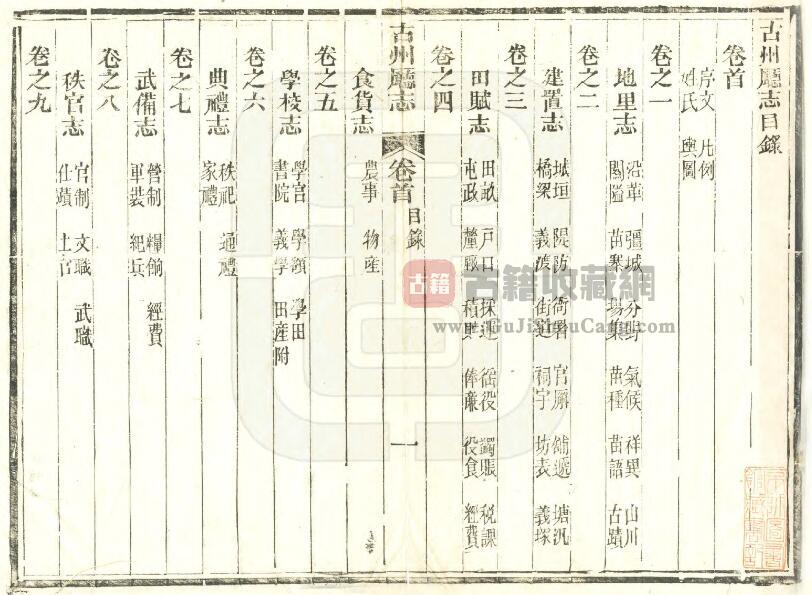 古州廳志目錄
卷首
序文 凡例
姓氏 輿圖
卷之一
地里志
沿革 疆域 分野 氣候 祥異 山川
關隘 苗寨 場集 苗種 苗語 古蹟
卷之二
建置志
城垣 隄防 衙署 官廨 舖遞 塘汛
橋梁 義渡 街道 祠宇 坊表 義塚
卷之三
田賦志
田畝 戶口 採運 徭役 蠲賑 稅課
屯政 釐 積貯 俸廉 役食 經費
卷之四
古州廳志
卷首
目錄
一
食貨志
農事 物産
卷之五
學校志
學宮 學額 學田
書院 義學 田産附
卷之六
典禮志
秩祀 通禮
家禮
卷之七
武備志
營制 糧餉 經費
軍裝 紀兵
卷之八
秩官志
官制 文職 武職
仕蹟 土官
卷之九
古籍
古籍收藏網
www.GuJiShouCang.com